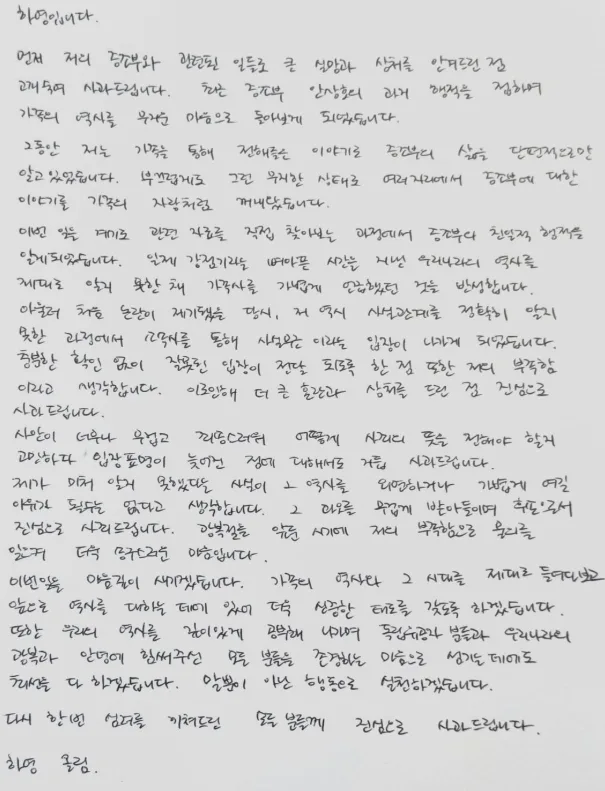 하영입니다.
먼저 저의 증조부와 관련된 일들로 큰 실망과 상처를 안겨드린 점
고개숙여 사과드립니다. 최근 증조부 안상호의 과거 행적을 접하며
가족의 역사를 무거운 마음으로 돌아보게 되었습니다.
그동안 저는 가족을 통해 전해들은 이야기로 증조부의 삶을 단편적으로만
알고있었습니다. 부끄럽게도 그런 무지한 상태로 여러자리에서 증조부에 대한
이야기를 가족의 자랑처럼 꺼내왔습니다.
이번 일을 계기로 관련 자료를 직접 찾아보는 과정에서 증조부의 친일적 행적을
알게되었습니다. 일제 강점기라는 뼈아픈 시간을 지낸 우리나라의 역사를
제대로 알지 못한 채 가족사를 가볍게 언급했던 것을 반성합니다.
아울러 처음 논란이 제기됐을 당시, 저 역시 사실관계를 정확히 알지
못한 과정에서 소속사를 통해 사실무근이라는 입장이 나가게 되었습니다.
충분한 확인 없이 잘못된 입장이 전달 되도록 한 점 또한 저의 부족함
이라고 생각합니다. 이로인해 더 큰 혼란과 상처를 드린 점 진심으로
사과드립니다.
사안이 너무나 무겁고 죄송스러워 어떻게 사죄의 뜻을 전해야 할지
고민하다 입장표명이 늦어진 점에 대해서도 거듭 사과드립니다.
제가 미처 알지 못했다는 사실이 그 역사를 외면하거나 가볍게 여길
이유가 될수는 없다고 생각합니다. 그 과오를 무겁게 받아들이며 후손으로서
진심으로 사죄드립니다. 광복절을 앞둔 시기에 저의 부족함으로 물의를
일으켜 더욱 송구스러운 마음입니다.
이번일을 마음깊이 새기겠습니다. 가족의 역사와 그 시대를 제대로 들여다보고
앞으로 역사를 대하는 데에 있어 더욱 신중한 태도를 갖도록 하겠습니다.
또한 우리의 역사를 깊이있게 공부해 나가며 독립유공자 분들과 우리나라의
광복과 안녕에 힘써주신 모든 분들을 존경하는 마음으로 섬기는데에도
최선을 다 하겠습니다. 말뿐이 아닌 행동으로 실천하겠습니다.
다시 한번 심려를 끼쳐드린 모든 분들께 진심으로 사과드립니다.
하영 올림.